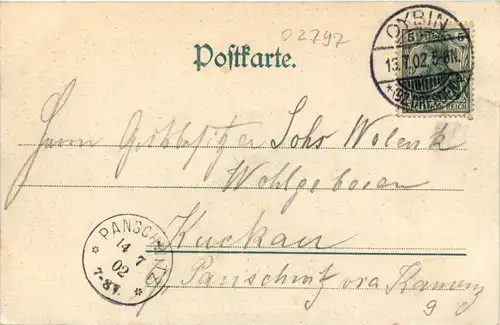 02797
Postkarte.
OYBIN
13.7.02 5-6N.
*(BZ.DRESDEN)*
5 5
REICH
Herrn Gutsbesitzer Johs Wolenk
Wohlgeboren
Kuckau
Panschwitz via Kamenz
9
PANSCHWITZ
14 7
02
7-8V.